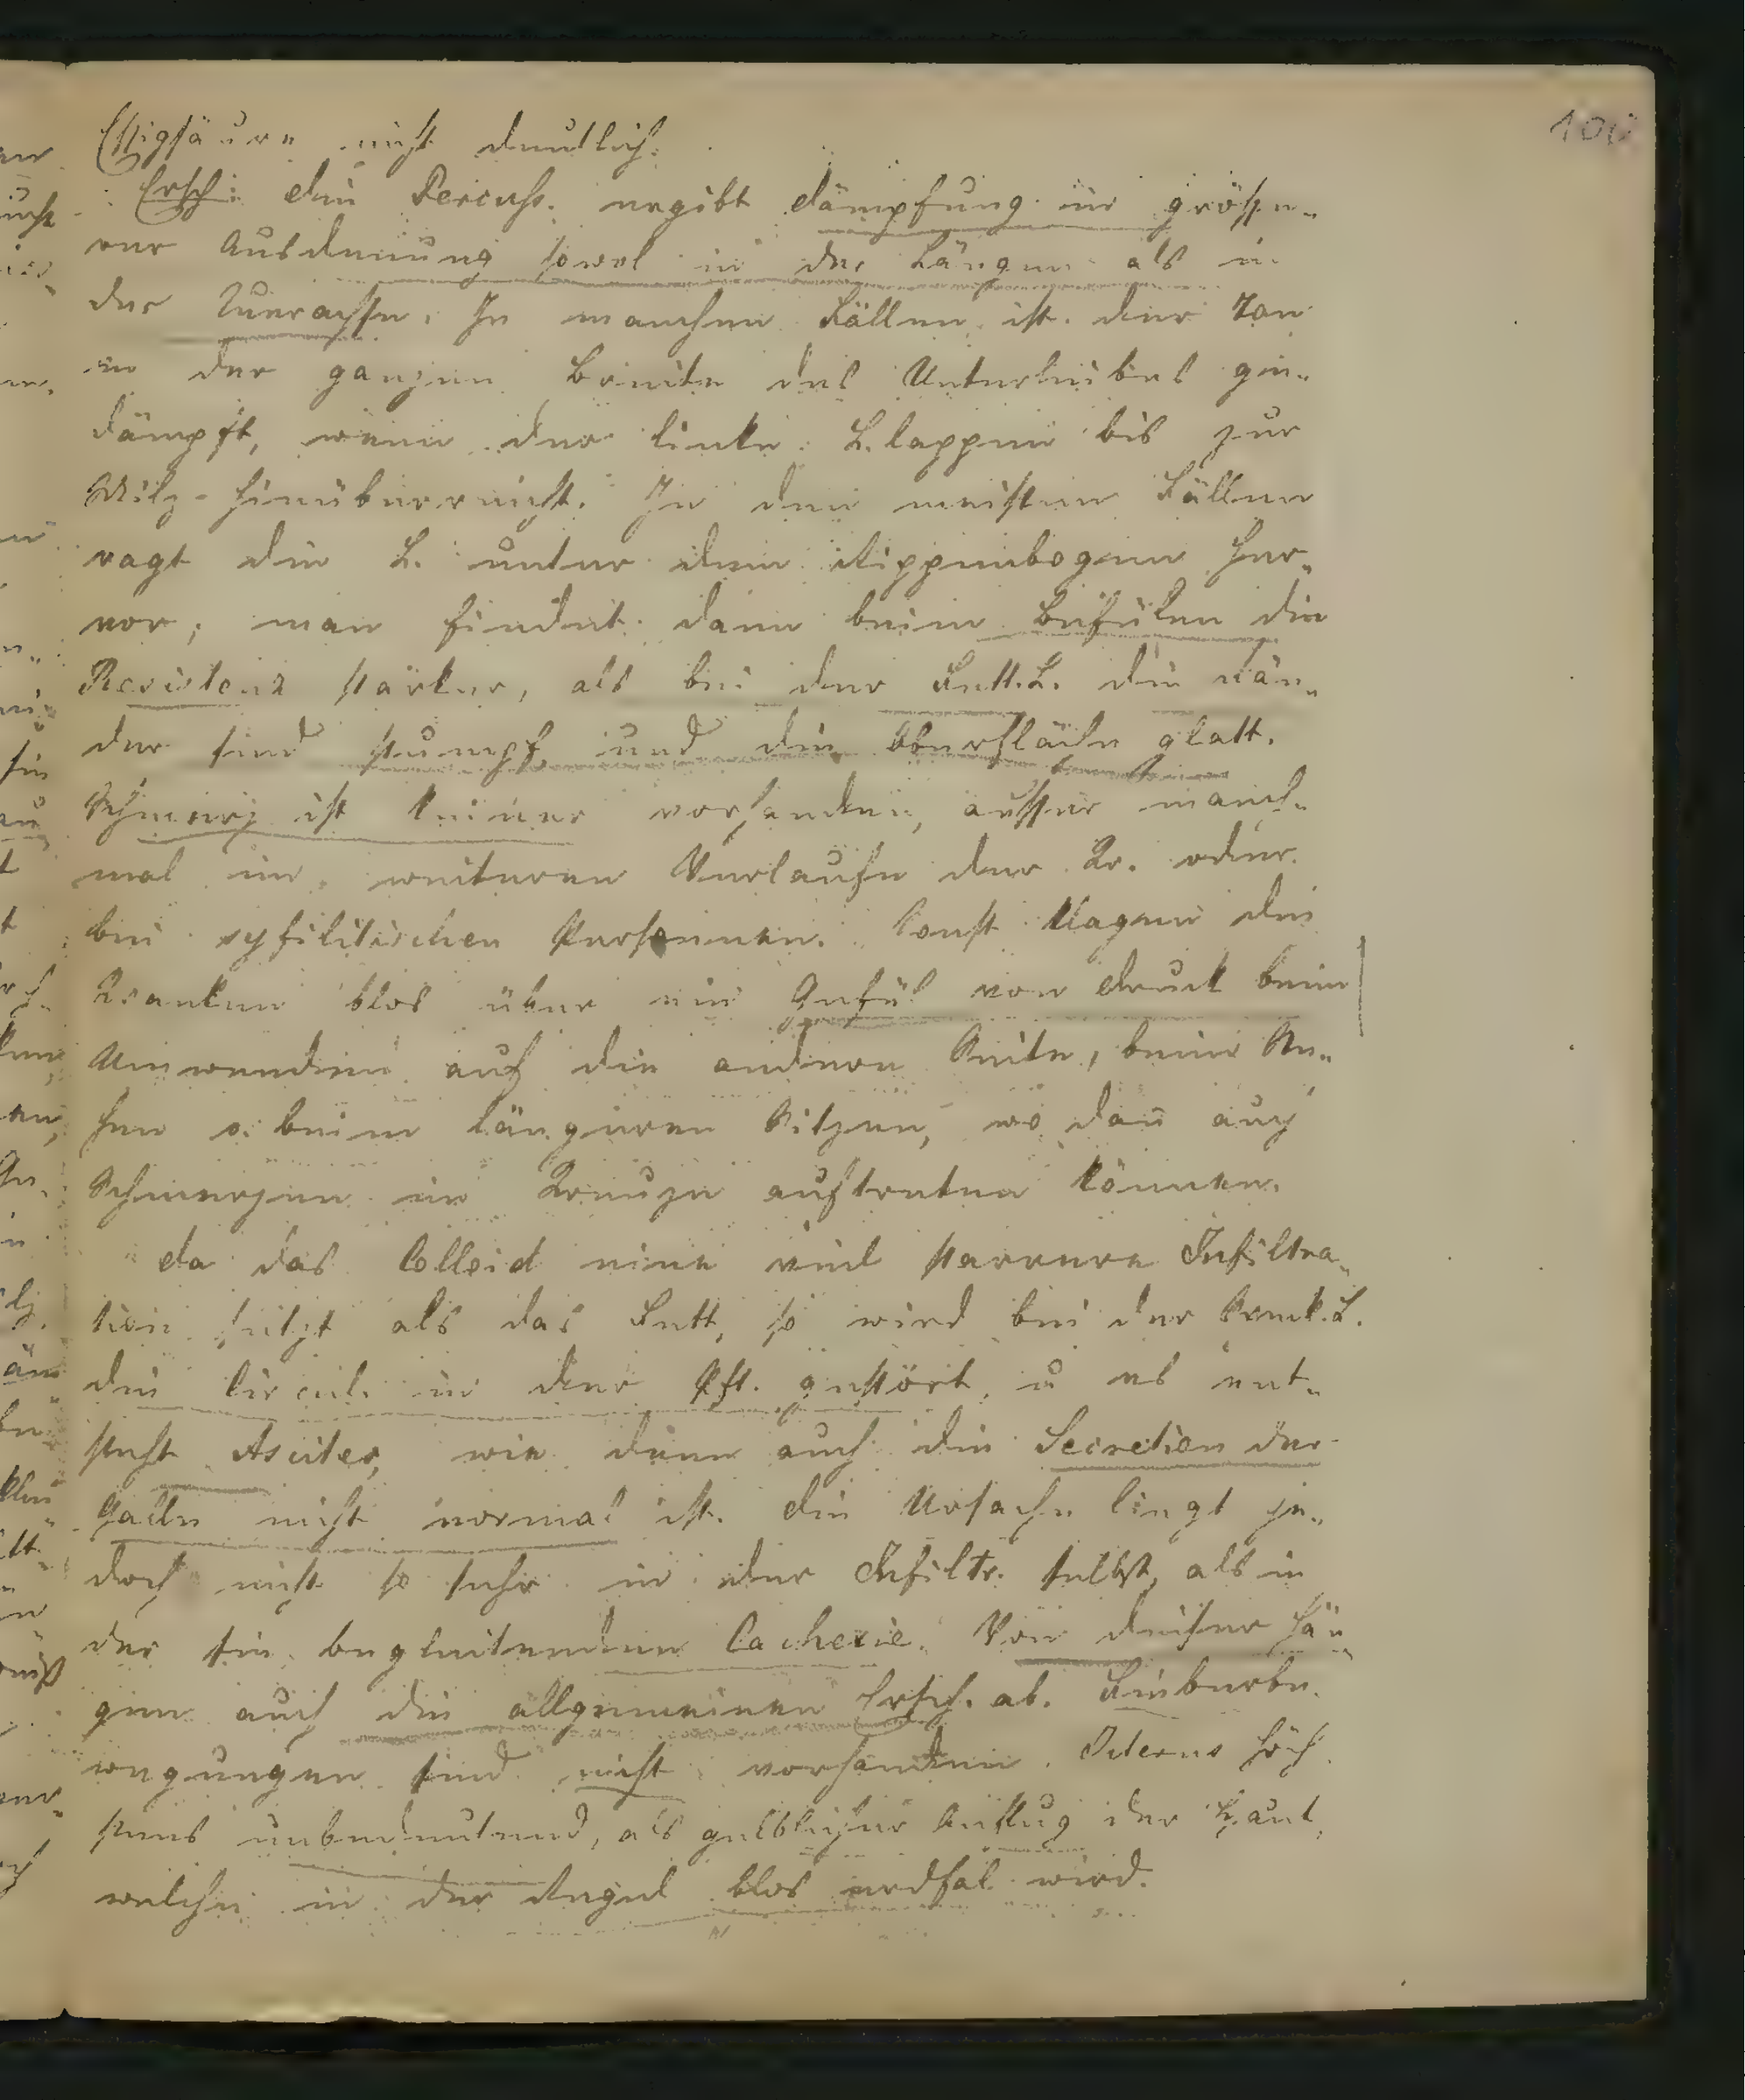 100
Essigsäure nicht deutlich.
Ersch: die Percuss. ergibt dämpfung in grösse„
rer Ausdenung sowol in der Längen als in
der Querachse. In manchen Fällen ist der Ton
in der ganzen Breite des Unterleibes ge„
dämpft, wenn der linke L.lappen bis zur
Milz hinüberreicht. In den meisten Fällen
ragt die L. unter dem Rippenbogen her„
vor; man findet dann beim Befülen die
Resistenz stärker, als bei der Fett.L. die Rän„
der sind stumpf und die Oberfläche glatt.
Schmerz ist keiner vorhanden, ausser manch„
mal im weiteren Verlaufe der Kr. oder
bei syfilitischen Personen. Sonst klagen die
Kranken blos über ein Gefül von druck beim
Umwenden auf die andere Seite, beim Ge„
hen o. beim längeren Sitzen, wo dañ auch
Schmerzen im Kreuze auftreten können.
da das Colloid eine viel starrere Infiltra„
tion setzt als das Fett, so wird bei der Speck.L.
die Circul. in der Pft. gestört, u es ent„
steht Ascites, wie denn auch die Secretion der
Galle nicht normal ist. die Ursache liegt je„
doch nicht so sehr in der Infiltr. selbst, als in
der sie begleitenden Cachexie. Von dieser hän„
gen auch die allgemeinen Ersch. ab. Fieberbe„
wegungen sind nicht vorhanden. Icterus höch„
stens unbedeutend, als gelblicher Anflug der Haut,
welche in der Regel blos erdfal wird.